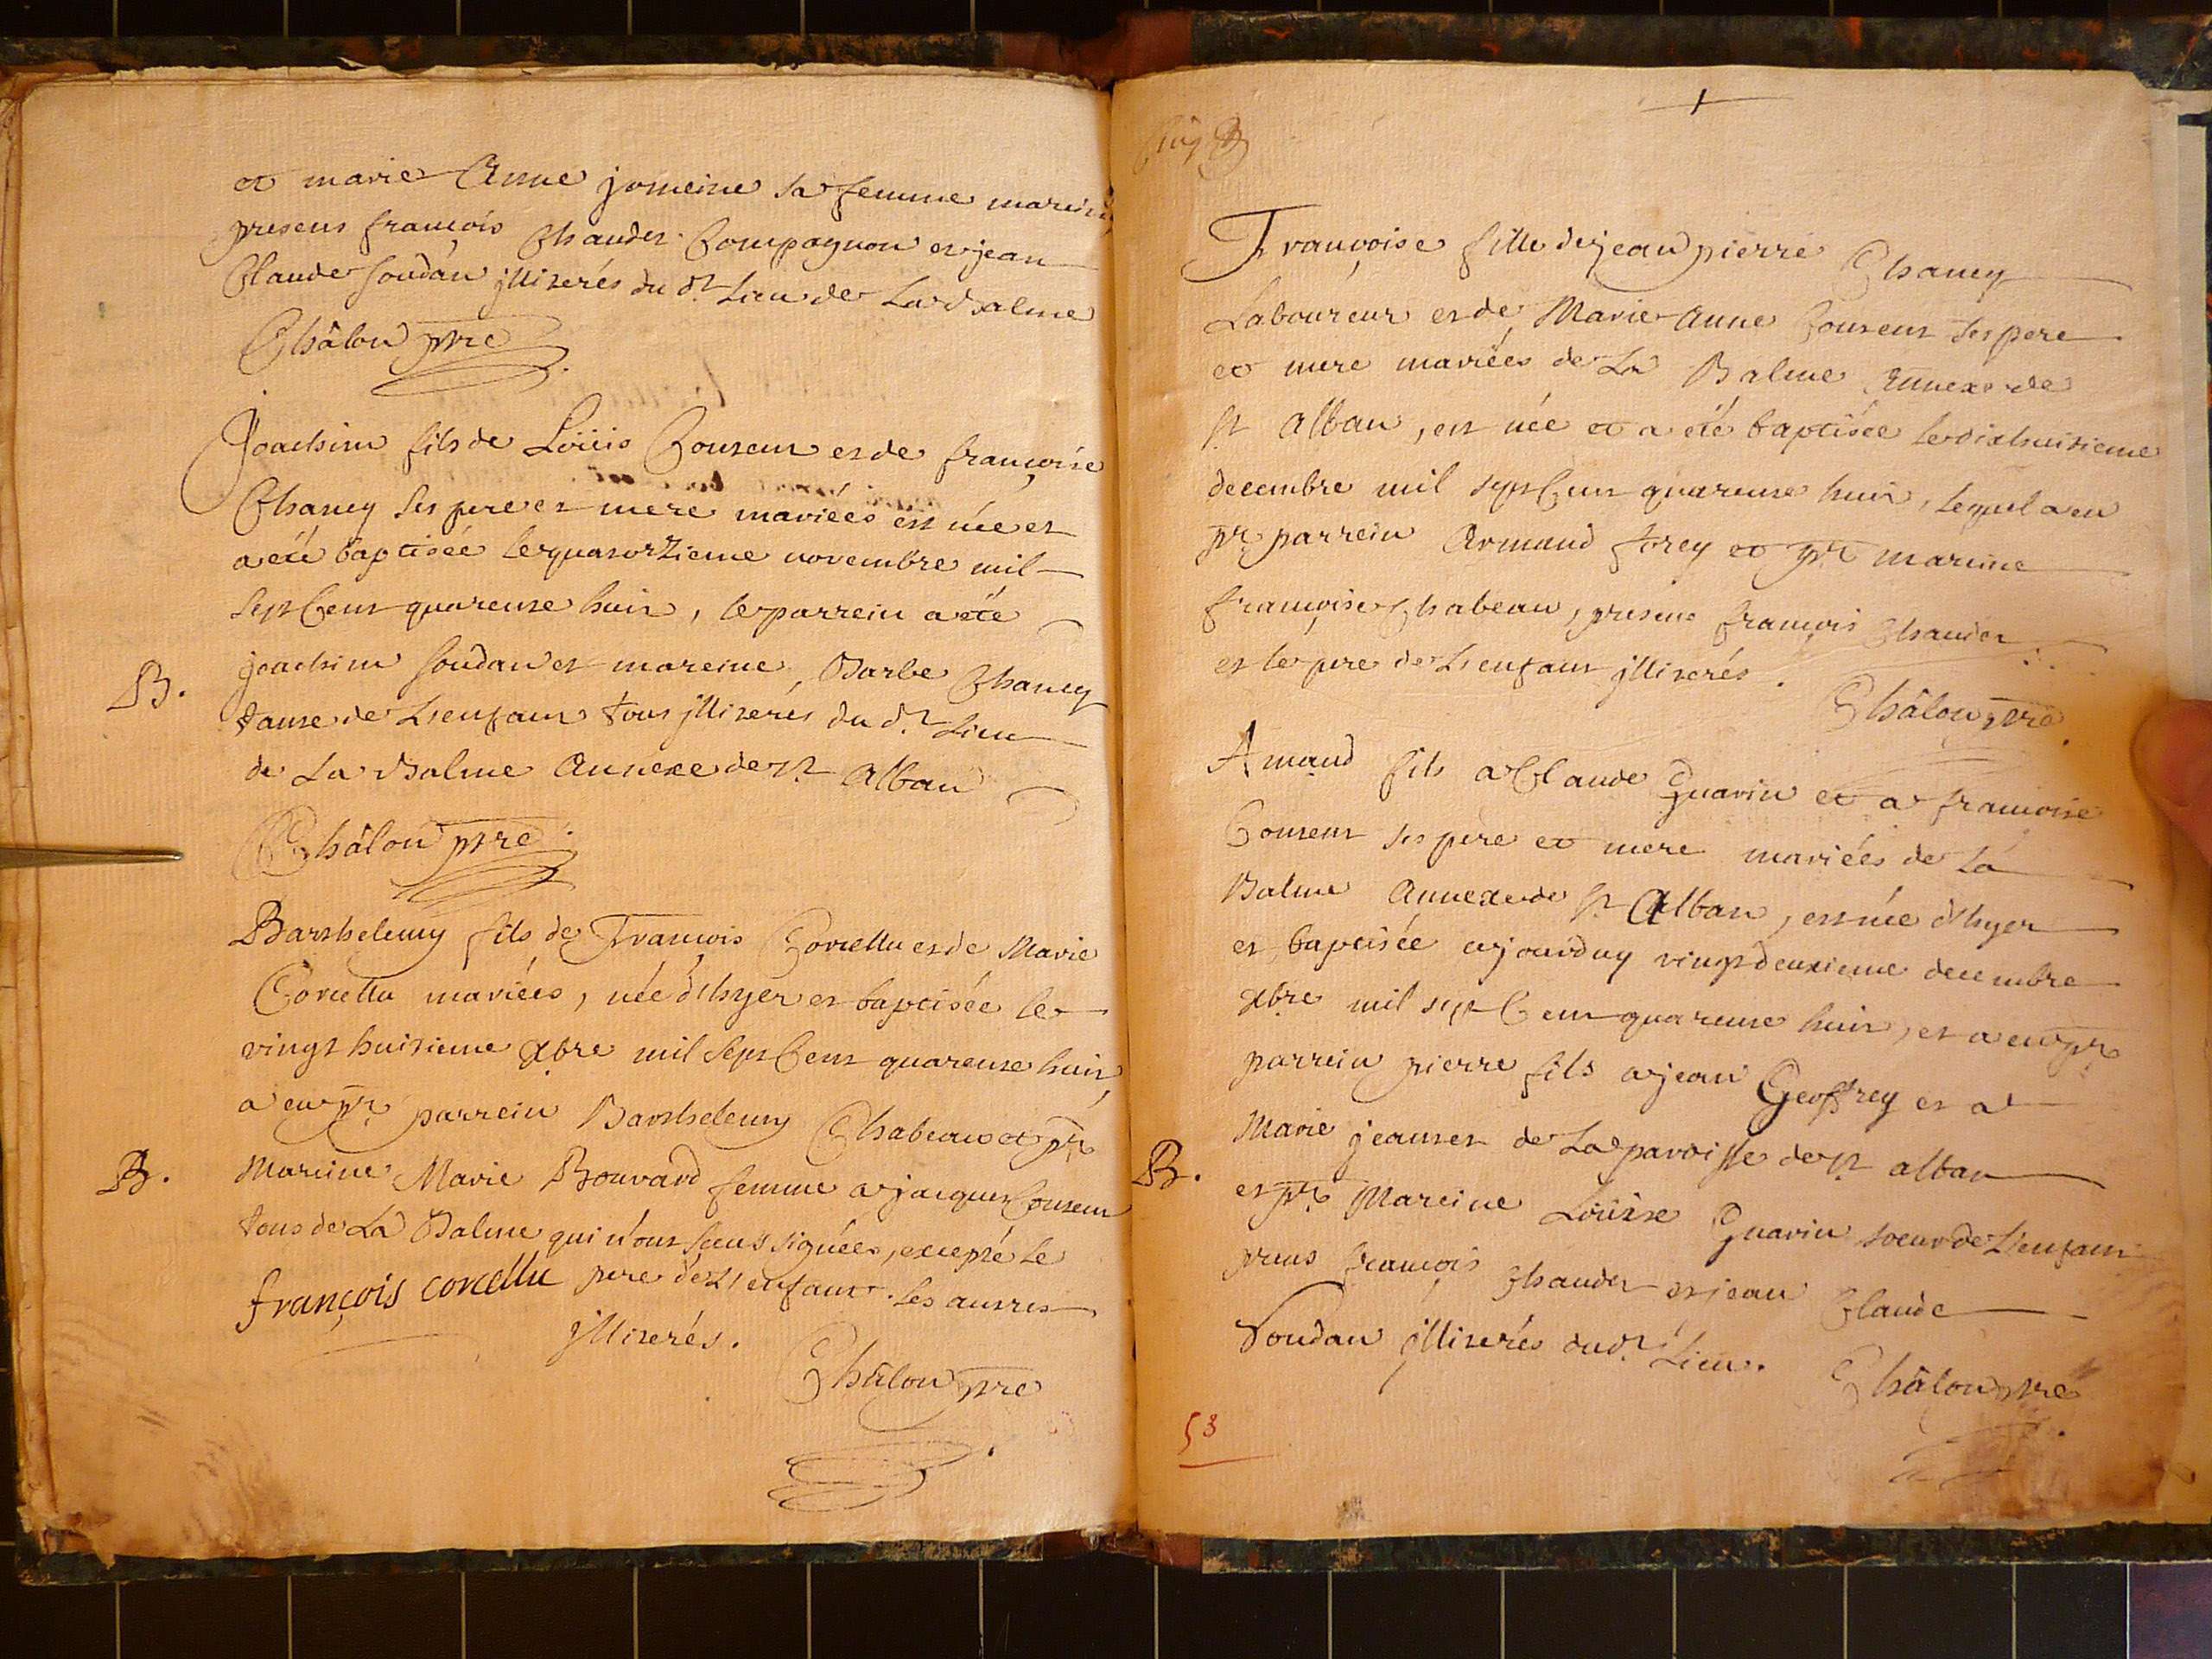 et marie Anne jomeine sa femme mareine
presens françois Chauder Compagnon et jean
Claude Soudan jlliterés du dt. Lieu de La Balme
Châlon ptre
Joachim fils de Loüis Couseur et de françoise
Chaney ses pere et mere mariées est née et
a eté baptisée le quatortzieme novembre mil
sept Cent quarente huit, le parrein a eté
joachim Soudan et mareine Barbe Chaney
B.
tante de L'enfant tous jlliterés du dt. Lieu
de La Balme Annexe de St. Alban
Châlon ptre
Barthelemy fils de François Corcellu et de Marie
Corcellu mariées, née d'hyer et baptisée le
vingt huitieme xbre mil Sept Cent quarente huit
a eu pr. parrein Barthelemy Chabeau et pr.
B.
Mareine Marie Bouvard femme a jacques Couseur
tous de La Balme qui n'ont Sceus signées, excepté le
françois corcellu pere de L'enfant. les autres
jlliterés.
Châlon ptre
Françoise fille de jean pierre Chaney
Laboureur et de Marie Anne Couseur ses pere
et mere mariées de La Balme Annexe de
St Alban, est née et a eté baptisée le dixhuitieme
decembre mil sept Cent quarente huit, lequel a eu
pr. parrein Armand forey et pr. mareine
françoise Chabeau, presens françois Chauder
et le pere de L'enfant jlliterés.
Châlon ptre
Amand fils a Claude Guarin et a francoise
Couseur ses pere et mere mariées de La
Balme Annexe de St Alban, est née d'hyer
et baptisée ajourduy vingt deuxieme decembre
xbre mil sept Cent quarente huit, et a eu pr.
parrein pierre fils a jean Geoffrey et a
Marie jeanter de La paroisse de St. alban
B.
et pr. Mareine Loüise Guarin soeur de L'enfant
prens françois Chauder et jean Claude
Soudan jlliterés dudt. Lieu.
Châlon ptre
53